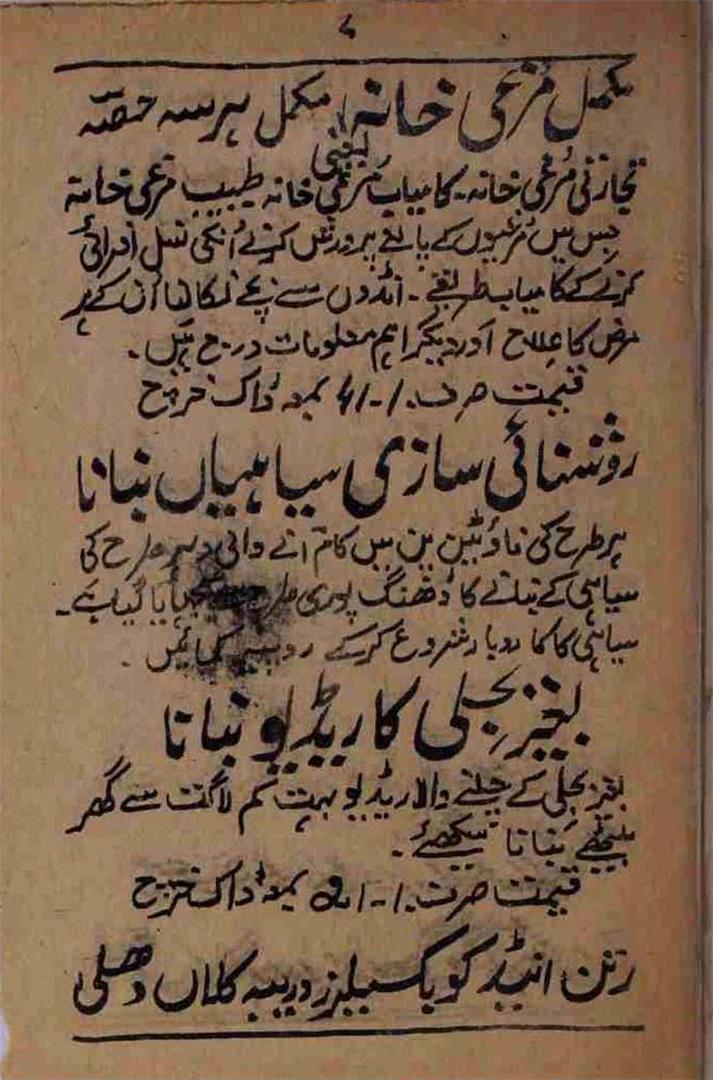 ۸
مکمل مُرغی خانہ مکمل ہر سہ حصّہ
یعنی
تجارتی مُرغی خانہ۔ کامیاب مُرغی خانہ طبیب مرغی خانہ
جس میں مُرغیوں کے پالنے پرورش کرنے اُنکی نسل افزائی
کرنے کے کامیاب طریقے۔ انڈوں سے بچے نکالنا اُن کے ہر
مرض کا علاج اور دیگر اہم معلومات درج ہیں۔
قیمت صرف ۔/۴۱ بمعہ ڈاک خرچ
روشنائی سازی سیاہیاں بنانا
ہر طرح کی فاؤنٹین پن میں کام آنے والی و ہر طرح کی
سیاہی کے بنانے کا ڈھنگ پوری طرح سے سمجھایا گیا ہے۔
سیاہی کا کاروبار شروع کرکے روپیہ کمائیں۔
بغیر بجلی کا ریڈیو بنانا
بغیر بجلی کے چلنے والا ریڈیو بہت کم لاگت سے گھر
بیٹھے بنانا سیکھئے۔
قیمت صرف بمعہ ڈاک خرچ
رتن اینڈ کو بکسیلرز دریبہ کلاں دھلی